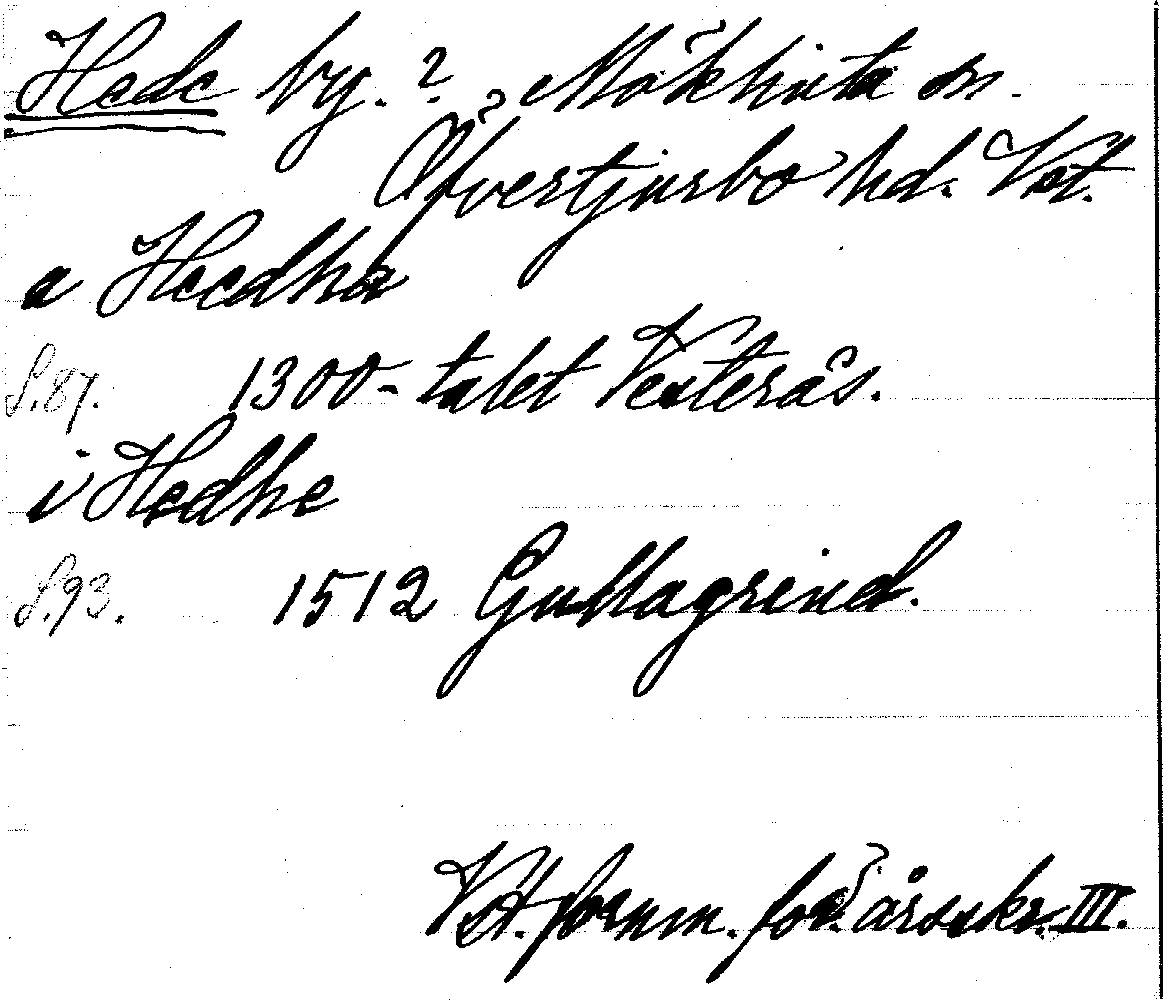 Hede by.? Möklinta sn.
Öfvertjurbo hd. Vst.
a Heedha
S.87. 1300-talet Vesterås.
i Hedhe
S.93. 1512 Gullagrind.
Vst. fornm. för. årsskr. III.